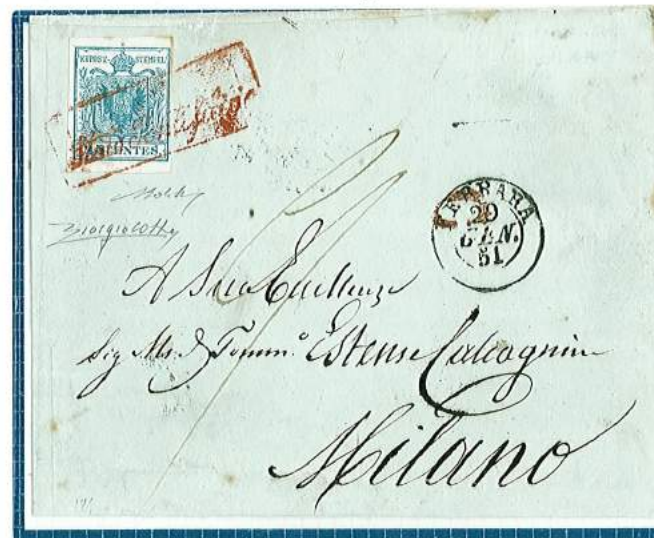 KKPOST-STEMPEL
45 CENTES.
FERRARA
29
GEN.
51
A Sua Eccellenza
Sig Ms. Tomm.º Estense Calcagnini
Milano